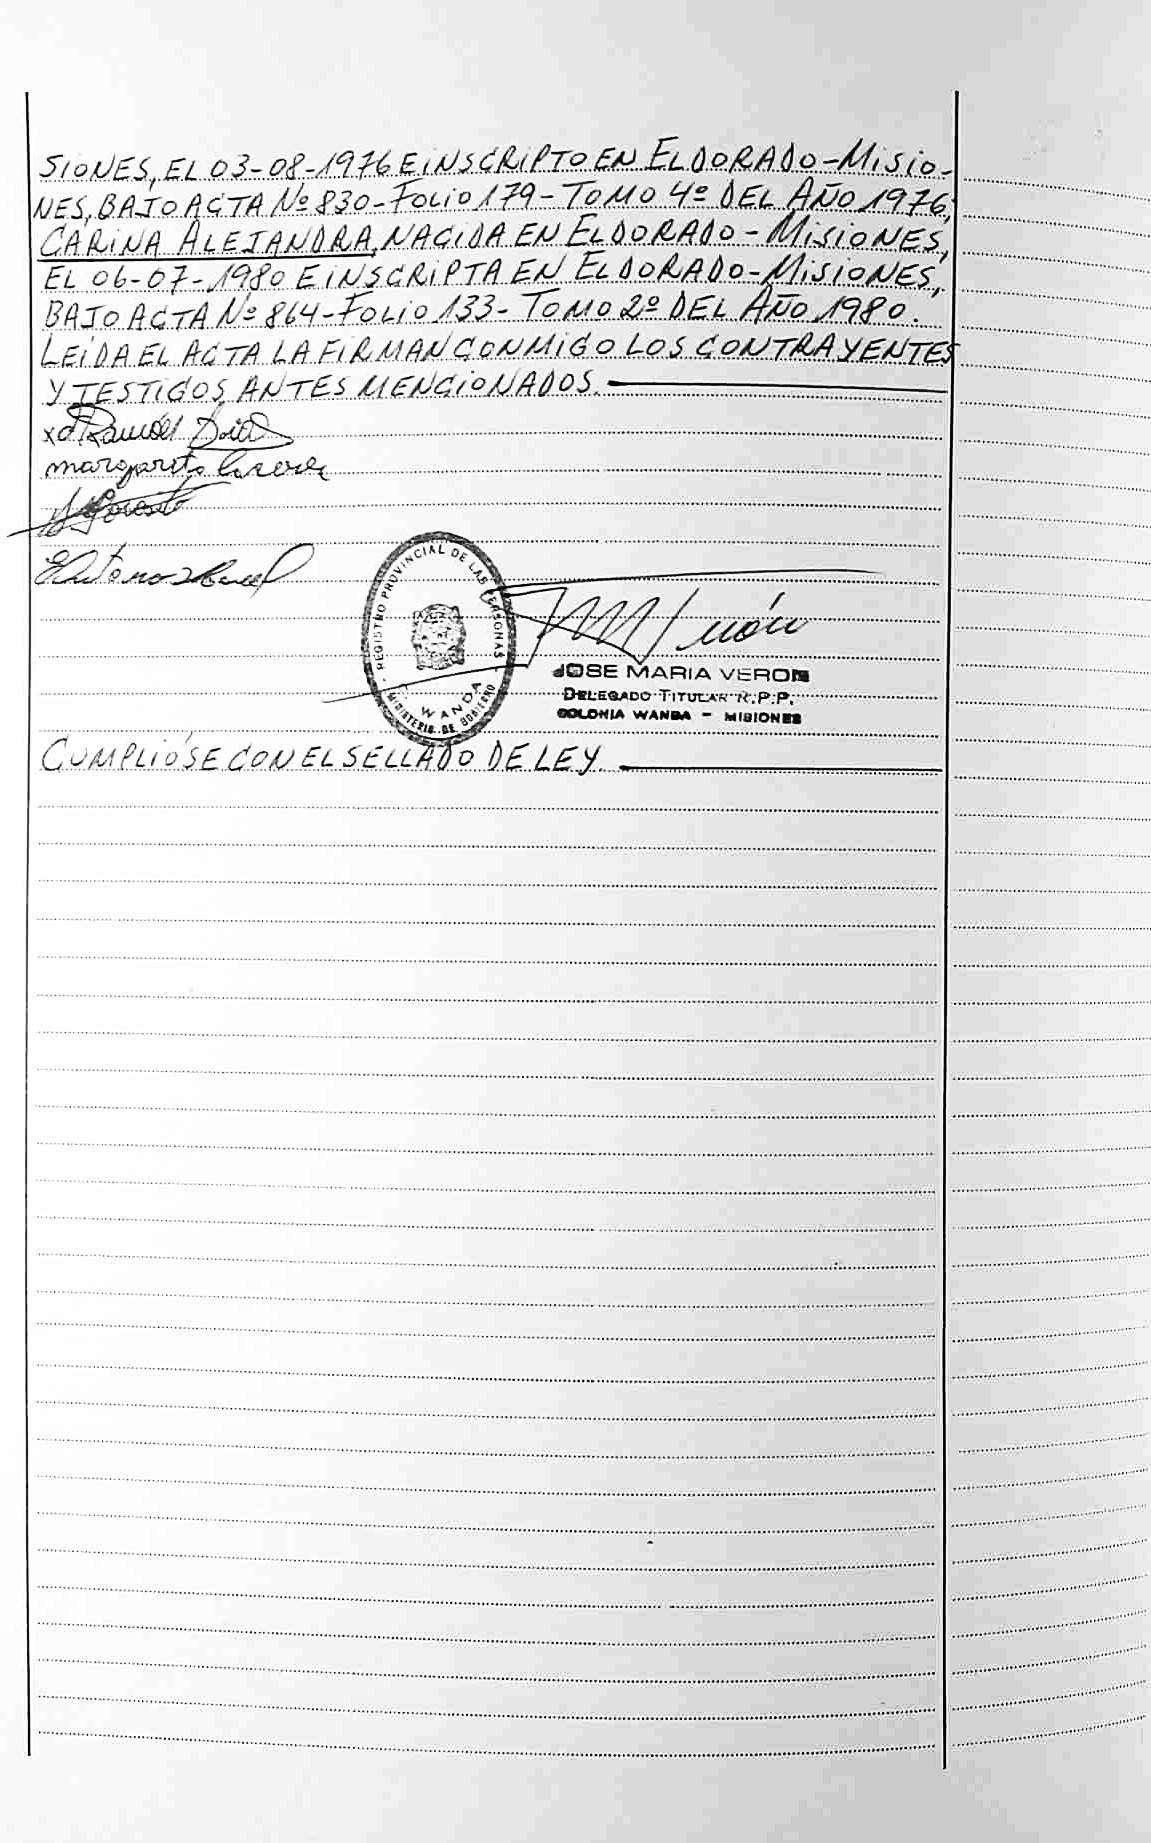 SIONES, EL 03-08-1976 E INSCRIPTO EN ELDORADO-MISIO-
NES, BAJO ACTA Nº 830-FOLIO 179-TOMO 4º DEL AÑO 1976;
CARINA ALEJANDRA, NACIDA EN ELDORADO-MISIONES,
EL 06-07-1980 E INSCRIPTA EN ELDORADO-MISIONES,
BAJO ACTA Nº 864-FOLIO 133-TOMO 2º DEL AÑO 1980.
LEÍDA EL ACTA LA FIRMAN CONMIGO LOS CONTRAYENTES
Y TESTIGOS ANTES MENCIONADOS.
Ramón
margarita
REGISTRO PROVINCIAL DE LAS PERSONAS
WANDA
MINISTERIO DE GOBIERNO
JOSE MARIA VERON
DELEGADO TITULAR R.P.P.
COLONIA WANDA - MISIONES
CUMPLIÓSE CON EL SELLADO DE LEY.